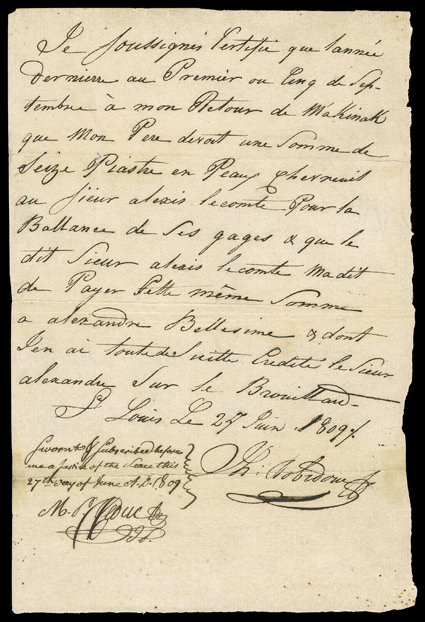 Je Soussignés Certifie que lannée
derniere au Premier ou Cinq de Sep-
tembre à mon Retour de Makinak
que Mon Pere devoit une Somme de
Seize Piastre en Peau Chevreuil
au Sieur alexis lecomte Pour la
Ballance de Ses gages & que le
dit Sieur alexis lecomte Madit
de Payer Cette même Somme
a alexandre Bellesime & dont
Jen ai toutede Suitte Credité le Sieur
alexandre Sur le Brouillard
St Louis Le 27 Juin 1809
Sworn & Subscribed before
me a Justice of the Peace this
27th day of June A.D. 1809
Jh. Robidoux
M. P. Leduc